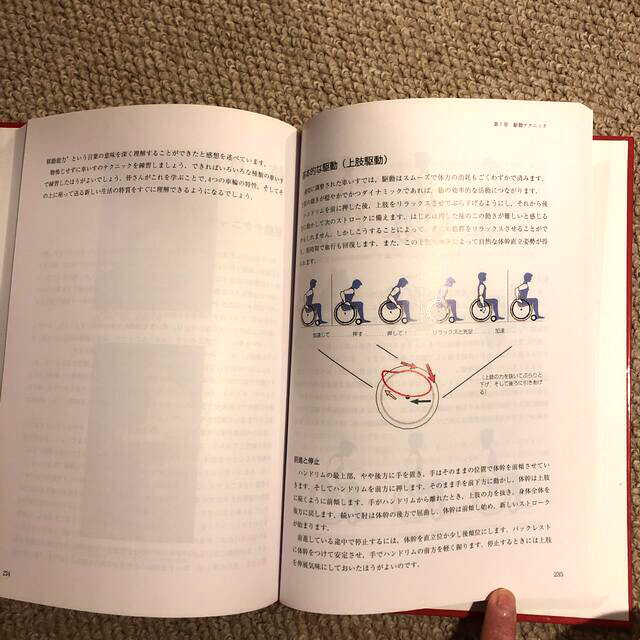 移動能力"という言葉の意味を深く理解することができたと感想を述べています。
物怖じせずに車いすのテクニックを練習しましょう。できればいろいろな種類の車いす
で練習したほうがよいでしょう。皆さんがこれを学ぶことで、4つの車輪の特性、そしてそ
の上に座って送る新しい生活の特質をすぐに理解できるようになるでしょう。
234
第7章 駆動テクニック
基本的な駆動（上肢駆動）
に調整された車いすでは、駆動はスムーズで体力の消耗もごくわずかで済みます。
の動きが穏やかでかつダイナミックであれば、筋の効率的な活動につながります。
ハンドリムを前に押した後、上肢をリラックスさせてぶら下げるようにし、それから後
に動かして次のストロークに備えます。はじめは押した後のこの動きが難しいと感じる
かもしれません。しかしこうすることによって、多くの筋群をリラックスさせることがで
き、短時間で血行も回復します。また、この上肢の動きによって自然な体幹直立姿勢が得
られます。
加速して
押す
押して！
リラックスと充足
加速
（上肢の力を抜いてぶらりと
下げ、そして後ろに引きあげ
る）
前進と停止
ハンドリムの最上部、やや後方に手を置き、手はそのままの位置で体幹を前傾させてい
きます。そしてハンドリムを前方に押します。そのまま手を前下方に動かし、体幹は上肢
に続くように前傾します。手がハンドリムから離れたとき、上肢の力を抜き、身体全体を
後方に戻します。続いて肘は体幹の後方で屈曲し、体幹は前傾し始め、新しいストローク
が始まります。
前進している途中で停止するには、体幹を直立位か少し後傾位にします。バックレスト
に体幹をつけて安定させ、手でハンドリムの前方を軽く握ります。停止するときには上肢
を伸展気味にしておいたほうがよいのです。
235